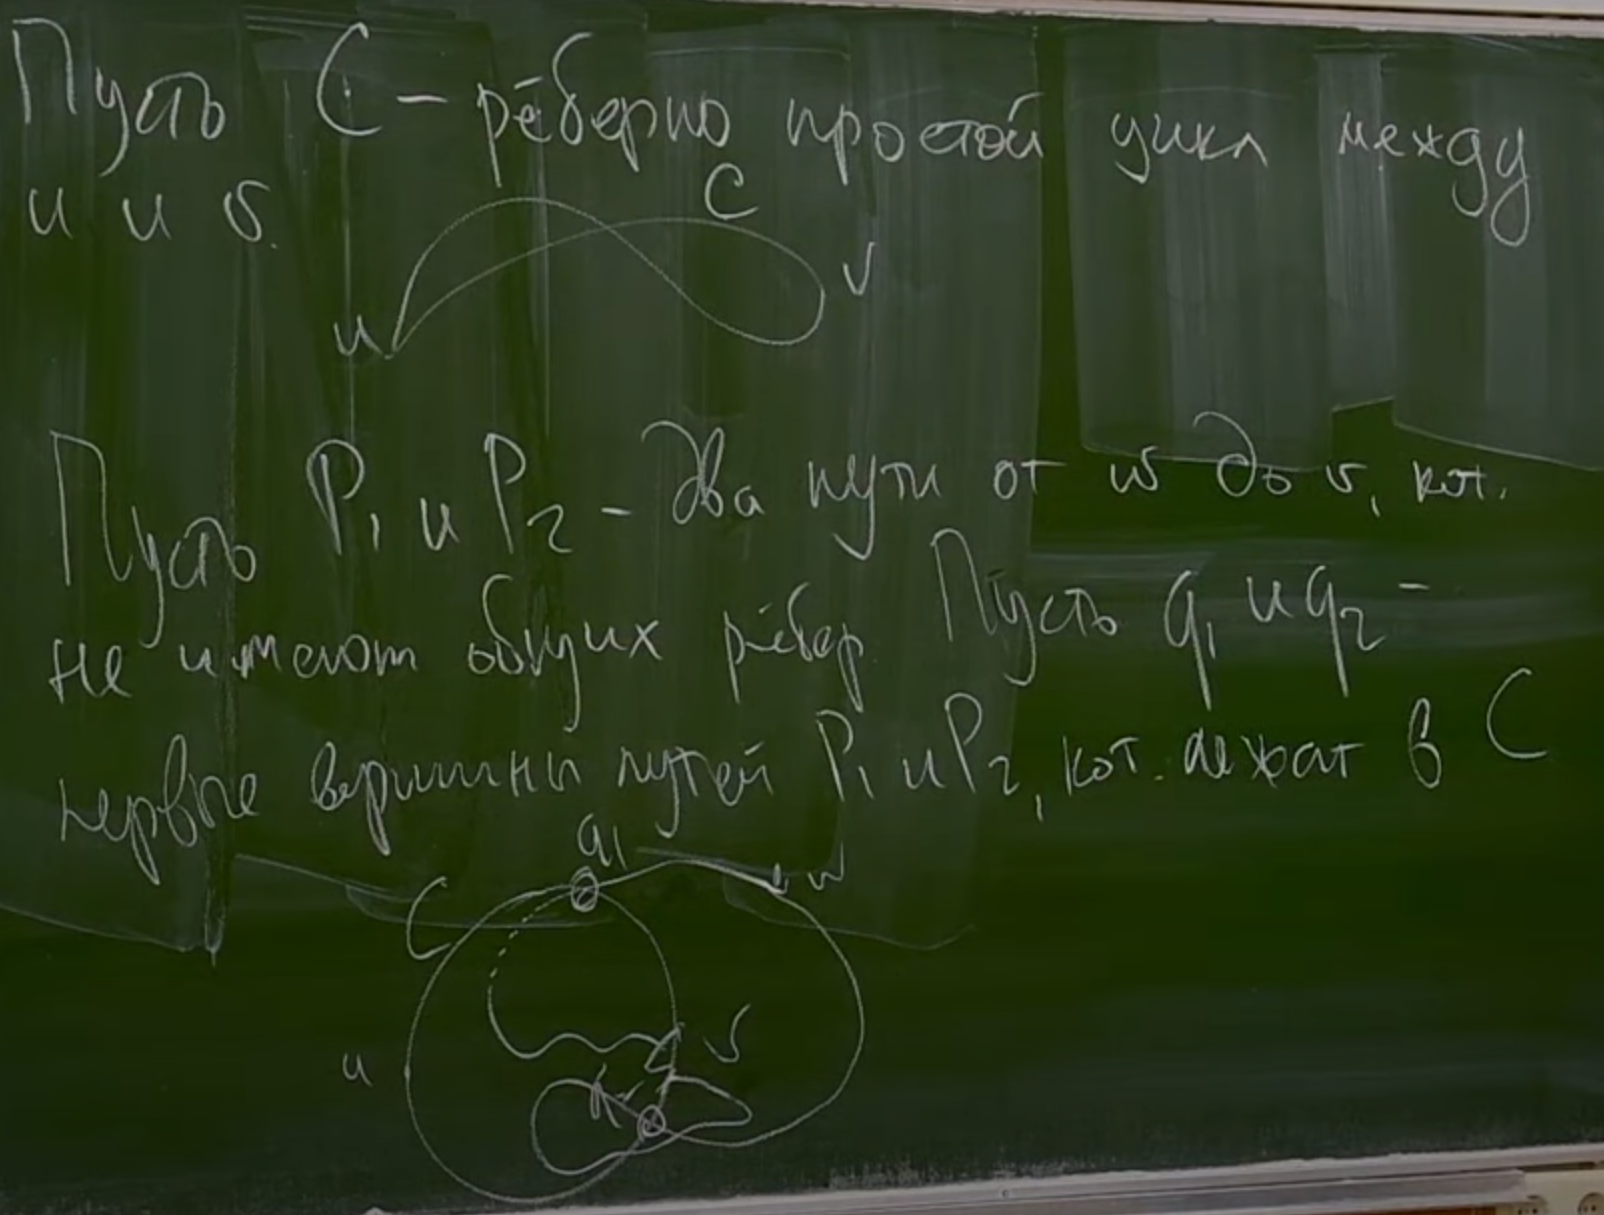 Пусть C – рёберно простой цикл между
u и v.
C
v
u
Пусть P₁ и P₂ – два пути от w до v, кот.
не имеют общих рёбер Пусть q₁ и q₂ –
первые вершины путей P₁ и P₂, кот. лежат в C
q₁
w
C
v
u